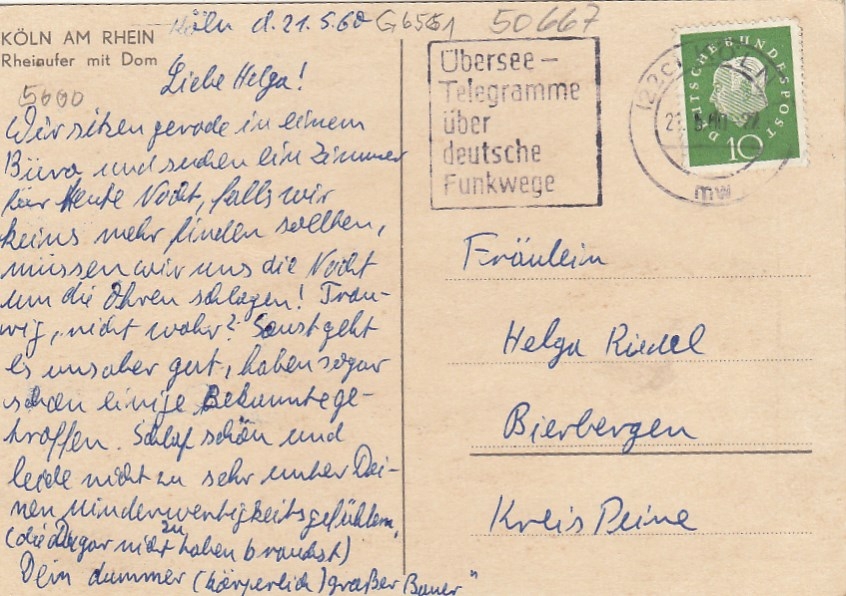 KÖLN AM RHEIN
Rheinufer mit Dom
5000
Köln d. 21.5.60
50667
Liebe Helga!
Wir sitzen gerade in einem
Büro und suchen ein Zimmer
für Heute Nacht, falls wir
keins mehr finden sollten,
müssen wir uns die Nacht
um die Ohren schlagen! Trau-
rig, nicht wahr? Sonst geht
es uns aber gut, haben sogar
schon einige Bekannte ge-
troffen. Schlaf schön und
leide nicht zu sehr unter Dei-
nen Minderwertigkeitsgefühlen,
(die Du gar nicht zu haben brauchst)
Dein dummer (körperlich) großer Bauer"
Übersee-
Telegramme
über
deutsche
Funkwege
(22c) KÖLN
mw
DEUTSCHE BUNDESPOST
10
Fräulein
Helga Riedel
Bierbergen
Kreis Peine